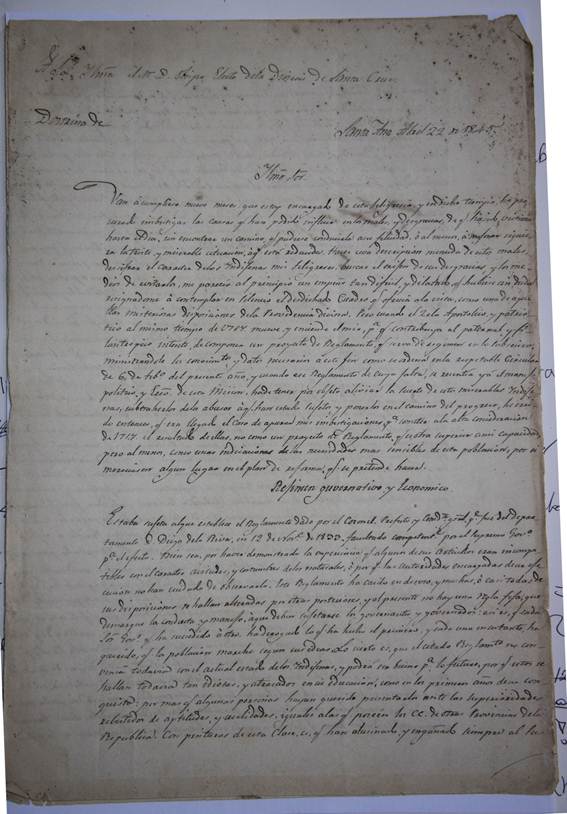 Illmõ. S.or D. D. Obpo. Electo de la Diocesis de Santa Cruz
Domino de
Santa Ana Abril 22 de 1845
Illmõ Sor.
Van á cumplirse nueve meses que estoy encargado de esta feligrecia, y en dicho tiempo, he pro
curado imbestigar las causas q.e han podido influir en los males, y desgracias, de q.e
hasta el dia, sin encontrar un camino, q.e pudiera conducirla a su felicidad, ó al menos, á mejorar siquie
ra la triste y miserable situacion, á q.e está reducida: traer una descripcion menuda de estos males,
decifrar el caracter de los Indíjenas mis feligreses, buscar el orijen de sus desgracias, y los me
dios de cortarlo, me parecio al principio un empeño tan dificil, y delatado, q.e hubiera sin duda
resignadome á contemplar en silencio el desdichado Cuadro q.e ofrecia a la vista, como una de aque
llas misteriosas disposiciones de la Providencia Divina. Pero cuando el zelo Apostolico, y patrio
tico al mismo tiempo de V.S.I. mueve, y enciende el mio, p.a q.e contribuya al paternal, y fi
lantropico intento, de componer un proyecto de Reglamento, q.e sirva de regimen en lo subcesivo,
ministrandole los conocim.tos y datos necesarios á este fin como se ordena en la respetable Circular
de 6, de Feb.o del presente año, y cuando ese Reglamento de cuya falta, se resentia ya el manejo
politico, y Eco. de esta Micion, ha de tener por objeto aliviar la suerte de estos miserables Indije
nas, substraherlos de los abusos á q.e han estado sujetos y ponerlos en el camino del progreso, he creí
do entonces, q.e era llegado el caso de apurar mis imbestigaciones, p.a someter a la alta consideracion
de V.S.I. el resultado de ellas, no como un proyecto de Reglamento, q.e es obra superior a mi capacidad,
pero al menos, como unas indicaciones de las necesidades mas sencibles de esta poblacion, por si
merecieran algun lugar en el plan de reforma, q.e se pretende hacer.
Rejimen gubernativo y Economico
Estaba sujeta al que establece el Reglamento dado por el Coronel, Prefecto y Comd.te gral. q.e fue del Depar
tamento D. Diego de la Riva, en 12 de Nov.e de 1832, facultado competentem.te por el supremo Gov.o
p.a el efecto. Bien sea, por haver demostrado la experiencia q.e algunos de sus Articulos eran incompa
tibles con el caracter, actitudes, y costumbres de los naturales, ó por q.e las Autoridades encargadas de su eje
cucion no han cuidado de observarlo, este Reglamento ha caido en desuso, y muchas, ó casi todas de
sus disposiciones se hallan alteradas por otras posteriores, y al presente no hay una regla fija, que
demarque la conducta y manejo, á que deben sujetarse los governantes y governados: asi es, q.e cada
Sor. Gov.or q.e ha sucedido á otro, ha desecho lo q.e ha hecho el primero, y cada uno innovante, ha
querido, q.e la poblacion marche segun sus ideas. Lo cierto es, que el citado Reglam.to no con
venia todavia con el actual estado de los Indijenas, y podria ser bueno p.a lo futuro, por q.e estos se
hallan todavia tan idiotas, y atrazados en su educacion, como en los primeros años de su con
quista: por mas q.e algunas personas hayan querido presentarlos ante las superioridades
rebestidos de aptitudes, y cualidades, iguales a las q.e poseen los CC. de otras Provincias de la
Republica. Con pinturas de esta Clase, es, q.e han alucinado, y engañado siempre al Su